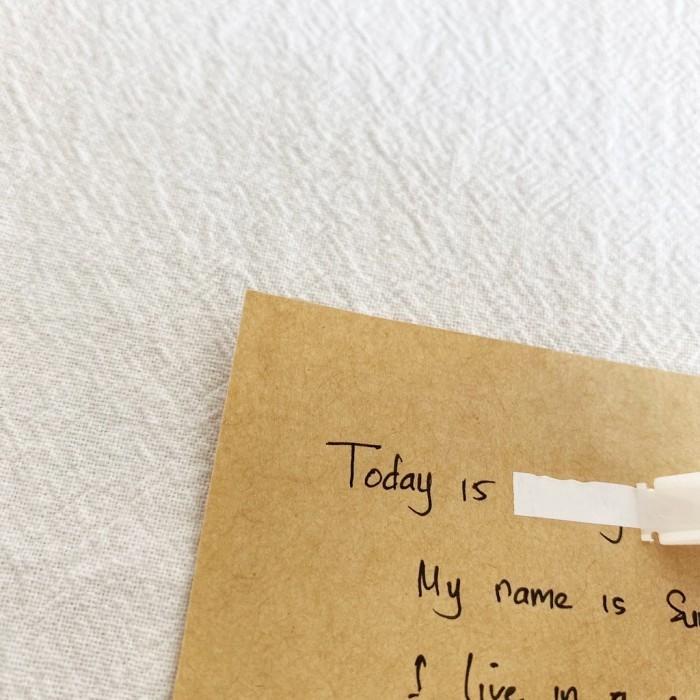 Today is
My name is
I live in a